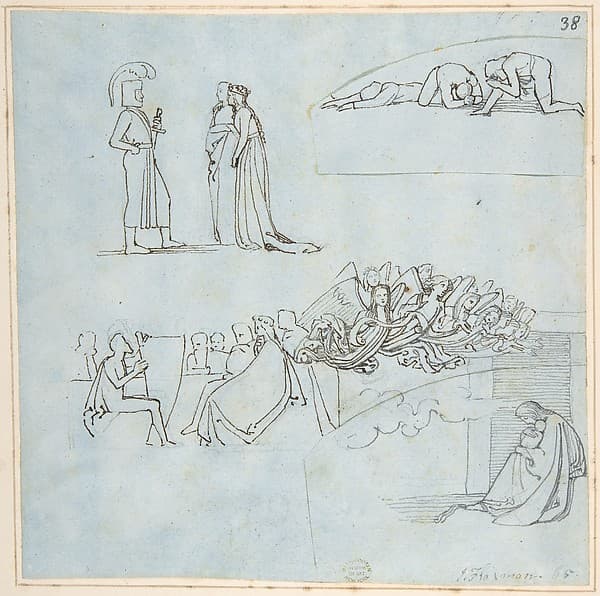 38
J. Flaxman. 65.